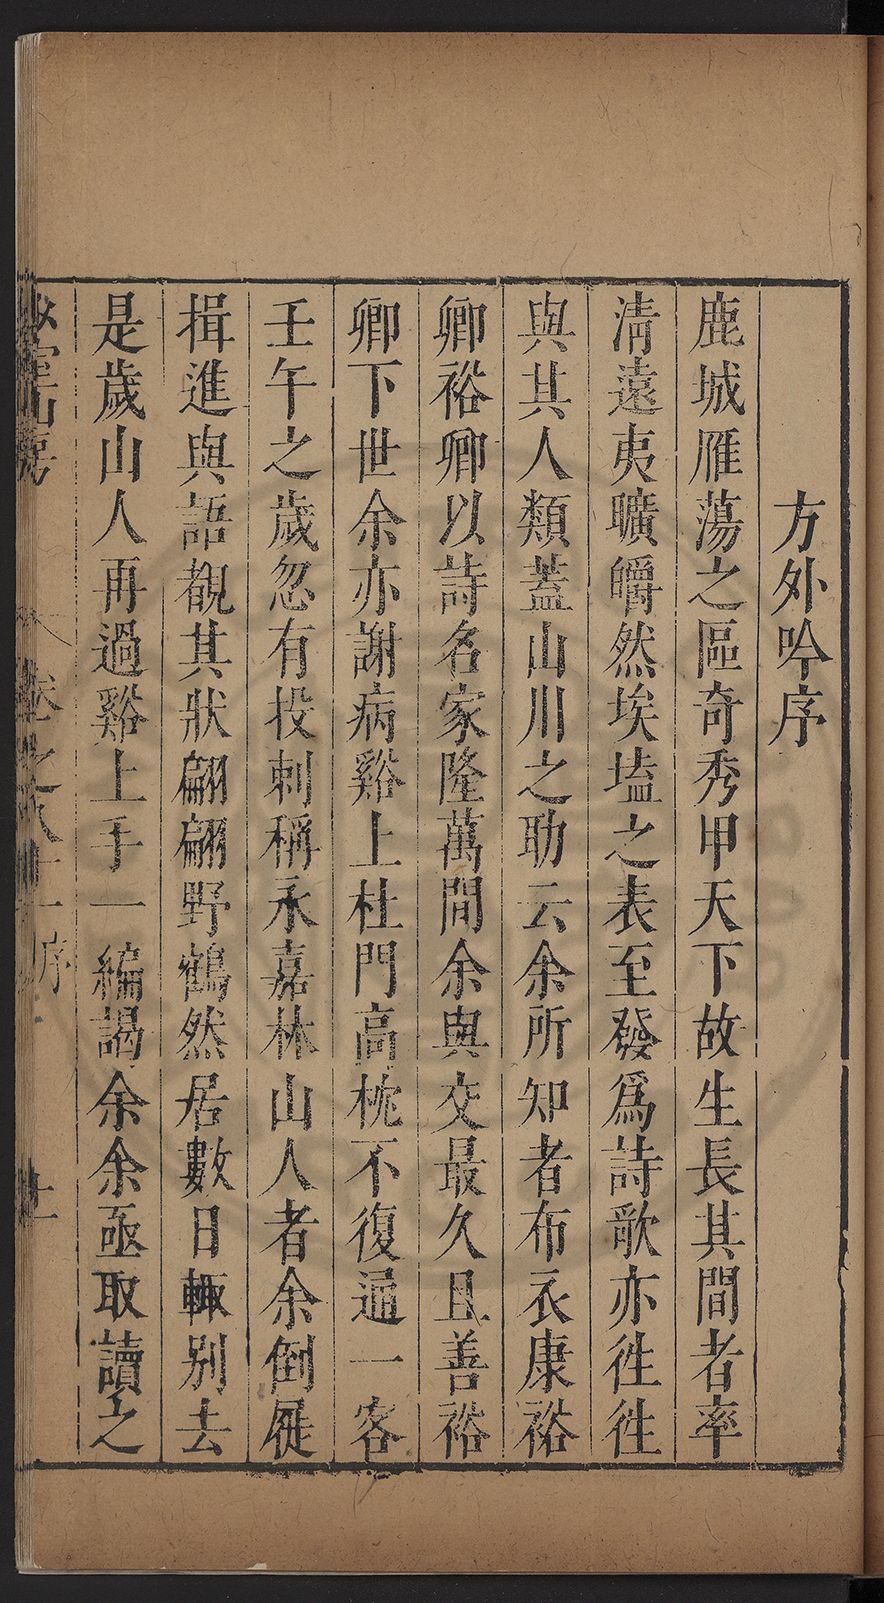 方外吟序
鹿城雁蕩之區奇秀甲天下故生長其間者率
清遠夷曠皭然埃壒之表至發爲詩歌亦徃徃
與其人類蓋山川之助云余所知者布衣康裕
卿裕卿以詩名家隆萬間余與交最久且善裕
卿下世余亦謝病谿上杜門高枕不復通一客
壬午之歲忽有投刺稱永嘉林山人者余倒屣
揖進與語覩其狀翩翩野鶴然居數日輙别去
是歲山人再過谿上手一編謁余余亟取讀之
山房 卷之八十一 序